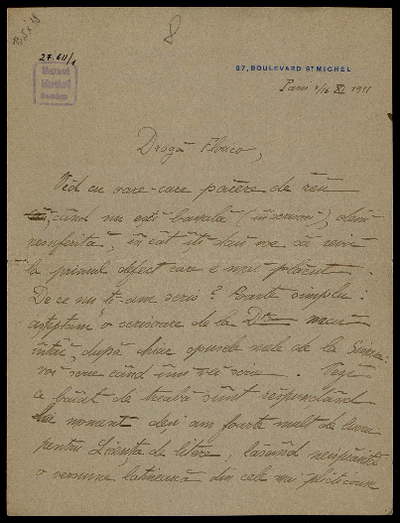 8
27.611/1
Muzeul
87, BOULEVARD ST MICHEL
Paris 3/16 XI 1911
Dragă Floico,
Văd cu oare-care părere de rău
când nu ești banală (în scrisori),
în cât îți dau voe să revii
la primul defect care e mai plăcut.
De ce nu ți-am scris? Foarte simplu:
așteptam o scrisoare de la Dta mai
întâi, după chiar spusele mele de la Sinaia:
voi scrie când îmi vei scrie. Vezi
ca băiat de treabă sunt răspunzând
la moment deși am foarte mult de lucru
pentru Licența de litere, lăsând neisprăvită
o versiune latinească din cele mai plicticoase